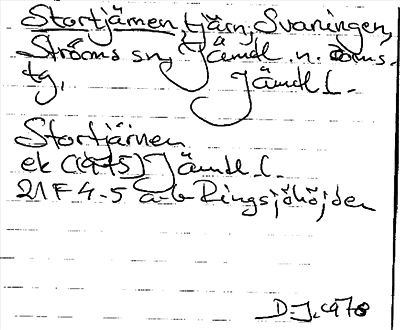 Stortjärnen, tjärn, Svaningen,
Ströms sn, Jämtl. n. doms-
tg, Jämtl l.
Stortjärnen
ek (1975) Jämtl l.
21F 4-5 a-b Ringsjöhöjden
D-J. 1978